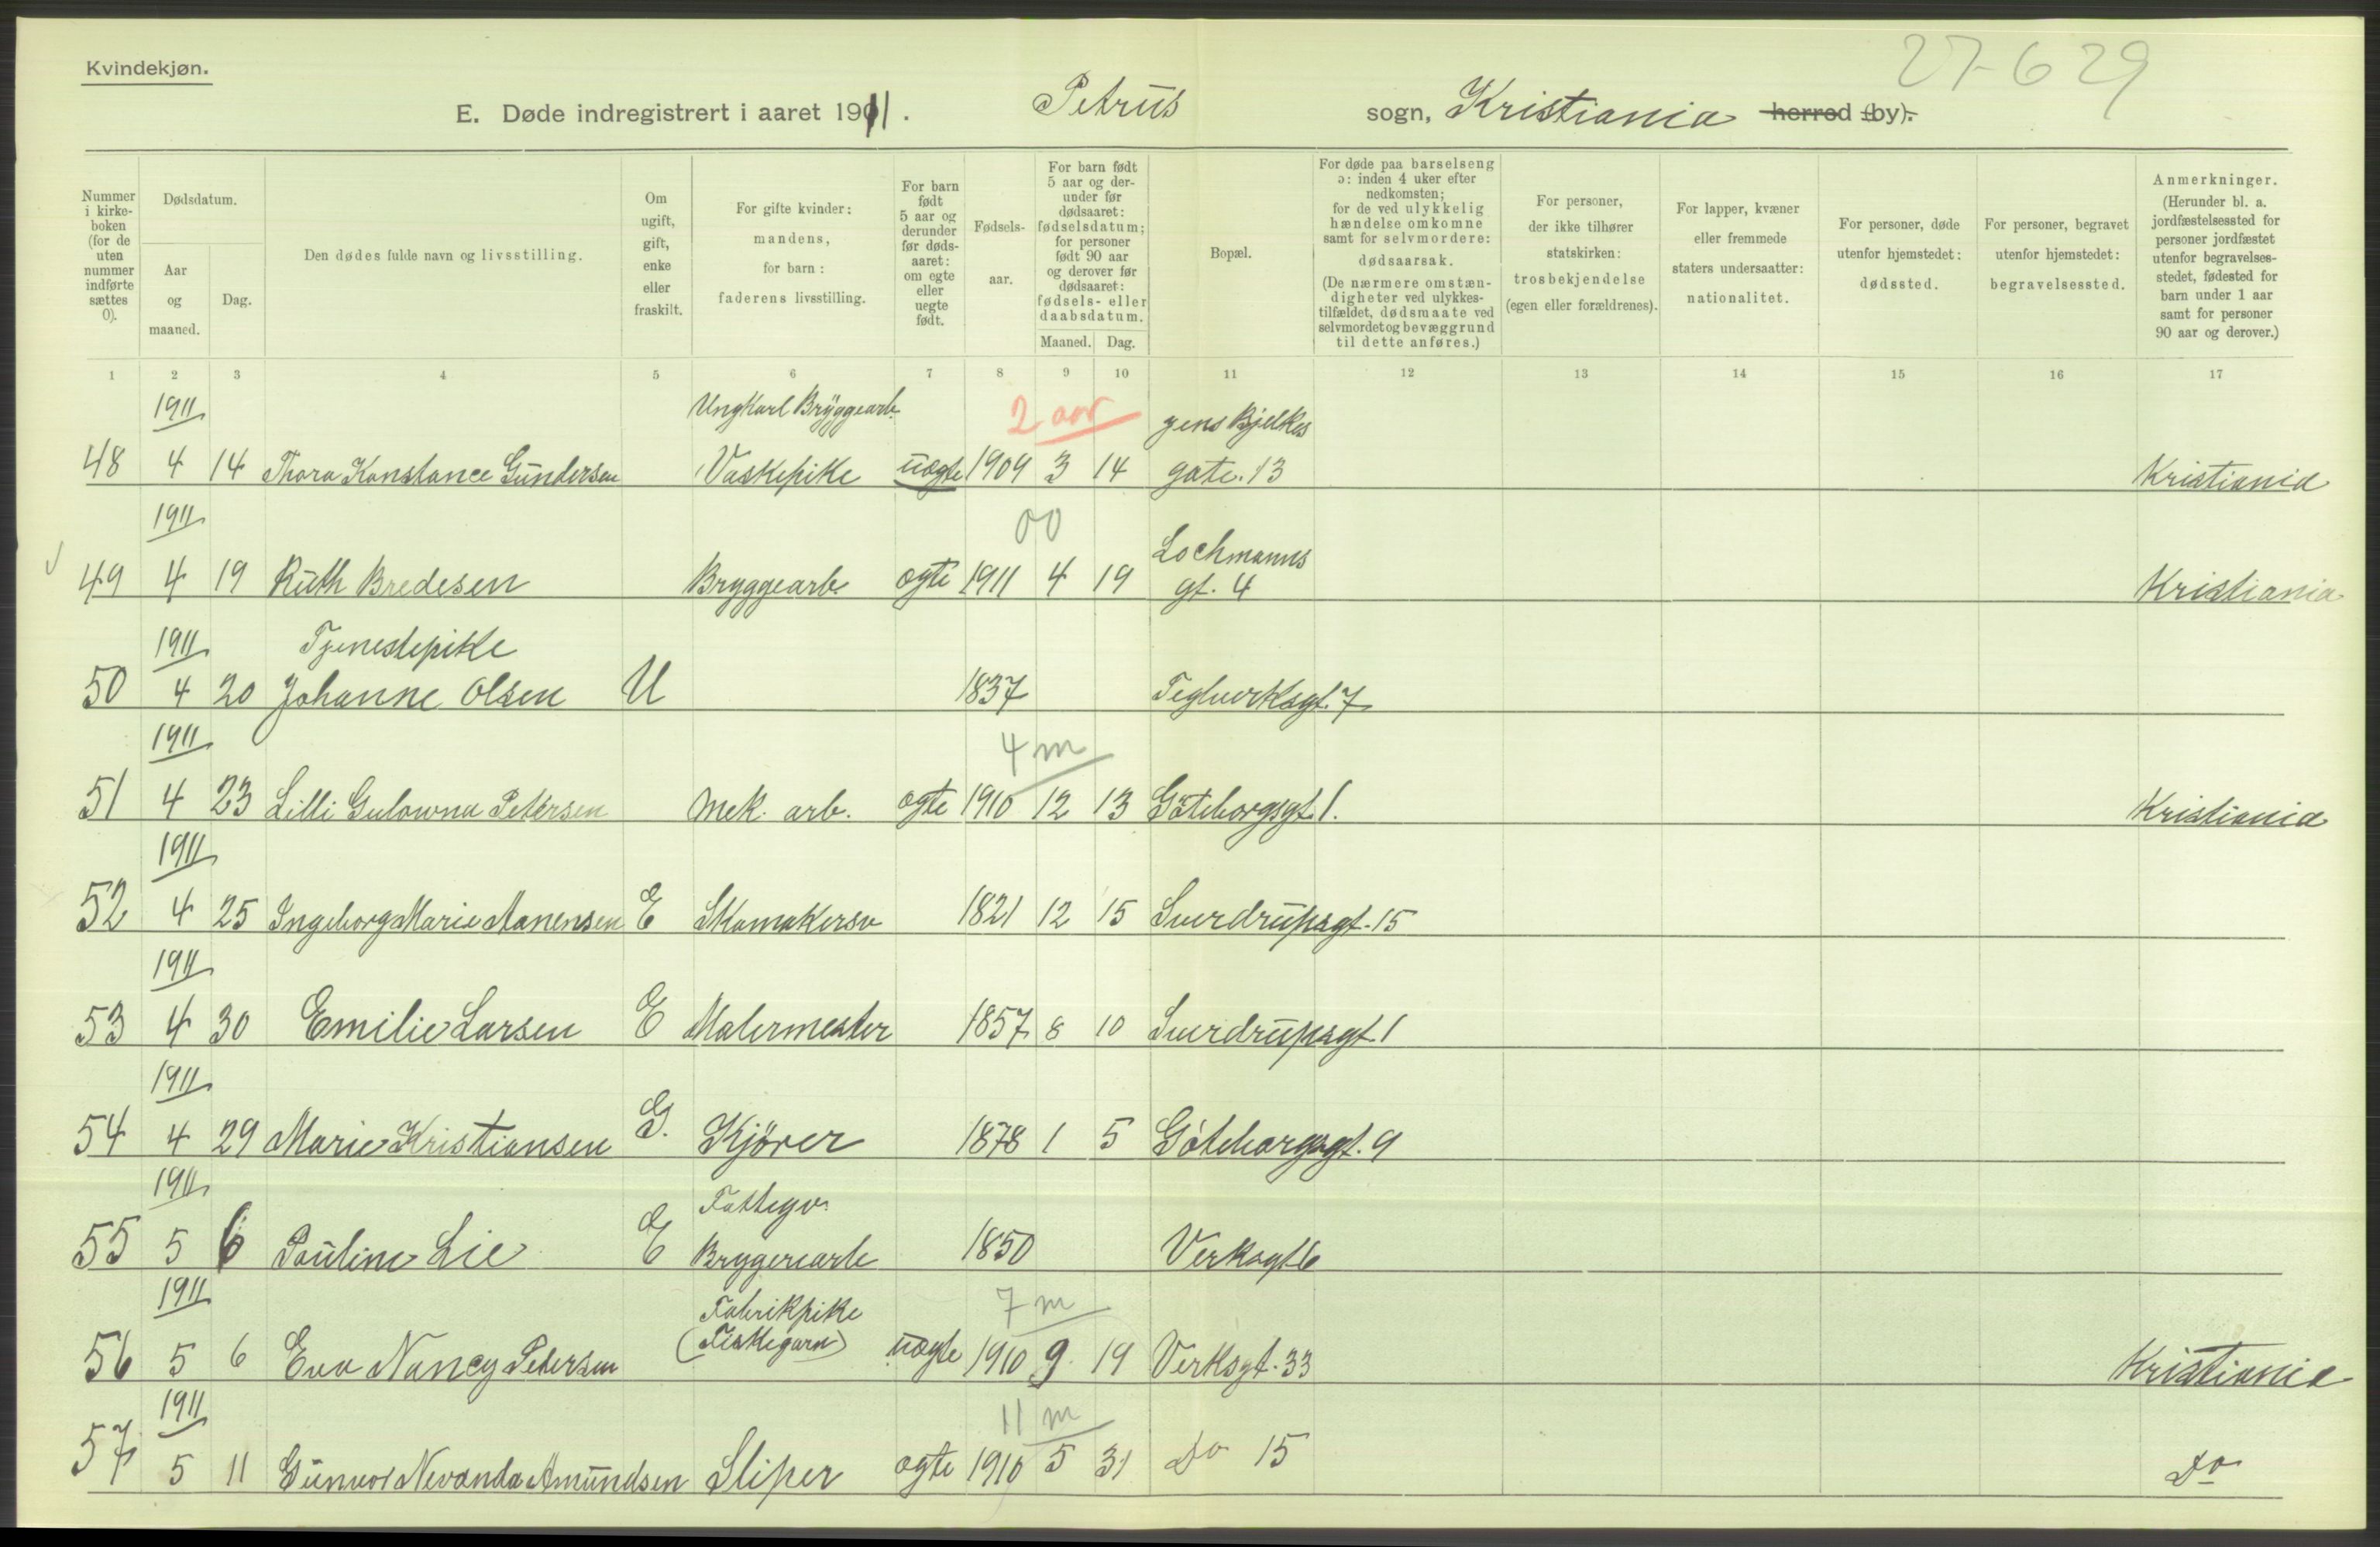 Kvindekjøn.
27-629
E. Døde indregistrert i aaret 1911. Petrus sogn, Kristiania herred (by).
Nummer i kirke-boken (for de uten nummer indførte sættes 0).
Dødsdatum.
Aar og maaned.
Dag.
Den dødes fulde navn og livsstilling.
Om ugift, gift, enke eller fraskilt.
For gifte kvinder: mandens, for barn: faderens livsstilling.
For barn født 5 aar og derunder før døds-aaret: om egte eller uegte født.
Fødsels-aar.
For barn født 5 aar og der-under før dødsaaret: fødselsdatum; for personer født 90 aar og derover før dødsaaret: fødsels- eller daabsdatum.
Maaned. Dag.
Bopæl.
For døde paa barselseng ɔ: inden 4 uker efter nedkomsten; for de ved ulykkelig hændelse omkomne samt for selvmordere: dødsaarsak.
(De nærmere omstæn-digheter ved ulykkes-tilfældet, dødsmaate ved selvmordet og bevæggrund til dette anføres.)
For personer, der ikke tilhører statskirken: trosbekjendelse (egen eller forældrenes).
For lapper, kvæner eller fremmede staters undersaatter: nationalitet.
For personer, døde utenfor hjemstedet: dødssted.
For personer, begravet utenfor hjemstedet: begravelsessted.
Anmerkninger. (Herunder bl. a. jordfæstelsessted for personer jordfæstet utenfor begravelses-stedet, fødested for barn under 1 aar samt for personer 90 aar og derover.)
1 2 3 4 5 6 7 8 9 10 11 12 13 14 15 16 17
1911 Ungkarl Bryggearb. 2 aar Jens Bjelkes
48 4 14 Thora Konstance Gundersen Vaskepike uegte 1909 3 14 gate. 13 Kristiania
1911 00 Lochmanns
49 4 19 Ruth Bredesen Bryggearb. egte 1911 4 19 gt. 4 Kristiania
1911 Tjenestepike
50 4 20 Johanne Olsen U 1837 Teglverksgt. 7
1911 4 m
51 4 23 Lilli Gulowna Petersen Mek. arb. egte 1910 12 13 Göteborgsgt. 1. Kristiania
1911
52 4 25 Ingeborg Marie Aanensen E Skomakersv 1821 12 15 Sverdrupsgt. 15
1911
53 4 30 Emilie Larsen E Malermester 1857 8 10 Sverdrupsgt. 1
1911
54 4 29 Marie Kristiansen G. Kjörer 1878 1 5 Göteborgsgt. 9
1911 Fattigv.
55 5 6 Pauline Lie E Bryggeriarb 1850 Verksgt 6
1911 Fabrikpike 7 m
56 5 6 Eva Nancy Petersen (Fiskegarn) uegte 1910 9 19 Verksgt. 33 Kristiania
1911 11 m
57 5 11 Gunvor Nevanda Amundsen Sliper egte 1910 5 31 Do 15 Do